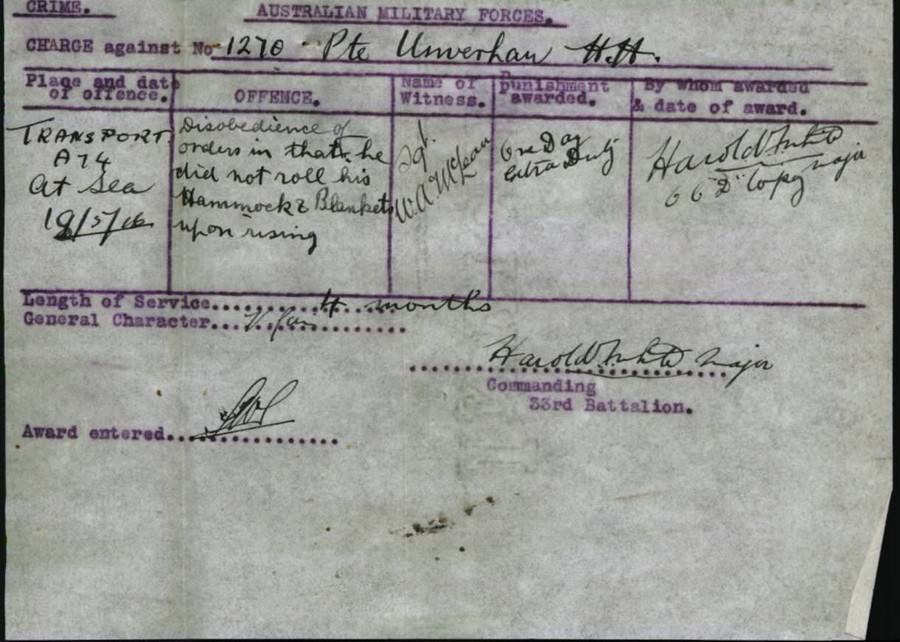 CRIME. AUSTRALIAN MILITARY FORCES.
CHARGE against No 1270 Pte Unverhau H.H.
Place and date of offence. OFFENCE. Name of Witness. punishment awarded. By whom awarded & date of award.
TRANSPORT
A74
at Sea
Disobedience of
orders in that he
did not roll his
Hammock & Blankets
upon rising
Sgt.
W.A. McLean
One Day
extra Duty
Harold White
Major
Length of Service.......4 months
General Character...
Harold White Major
Commanding
33rd Battalion.
Award entered..